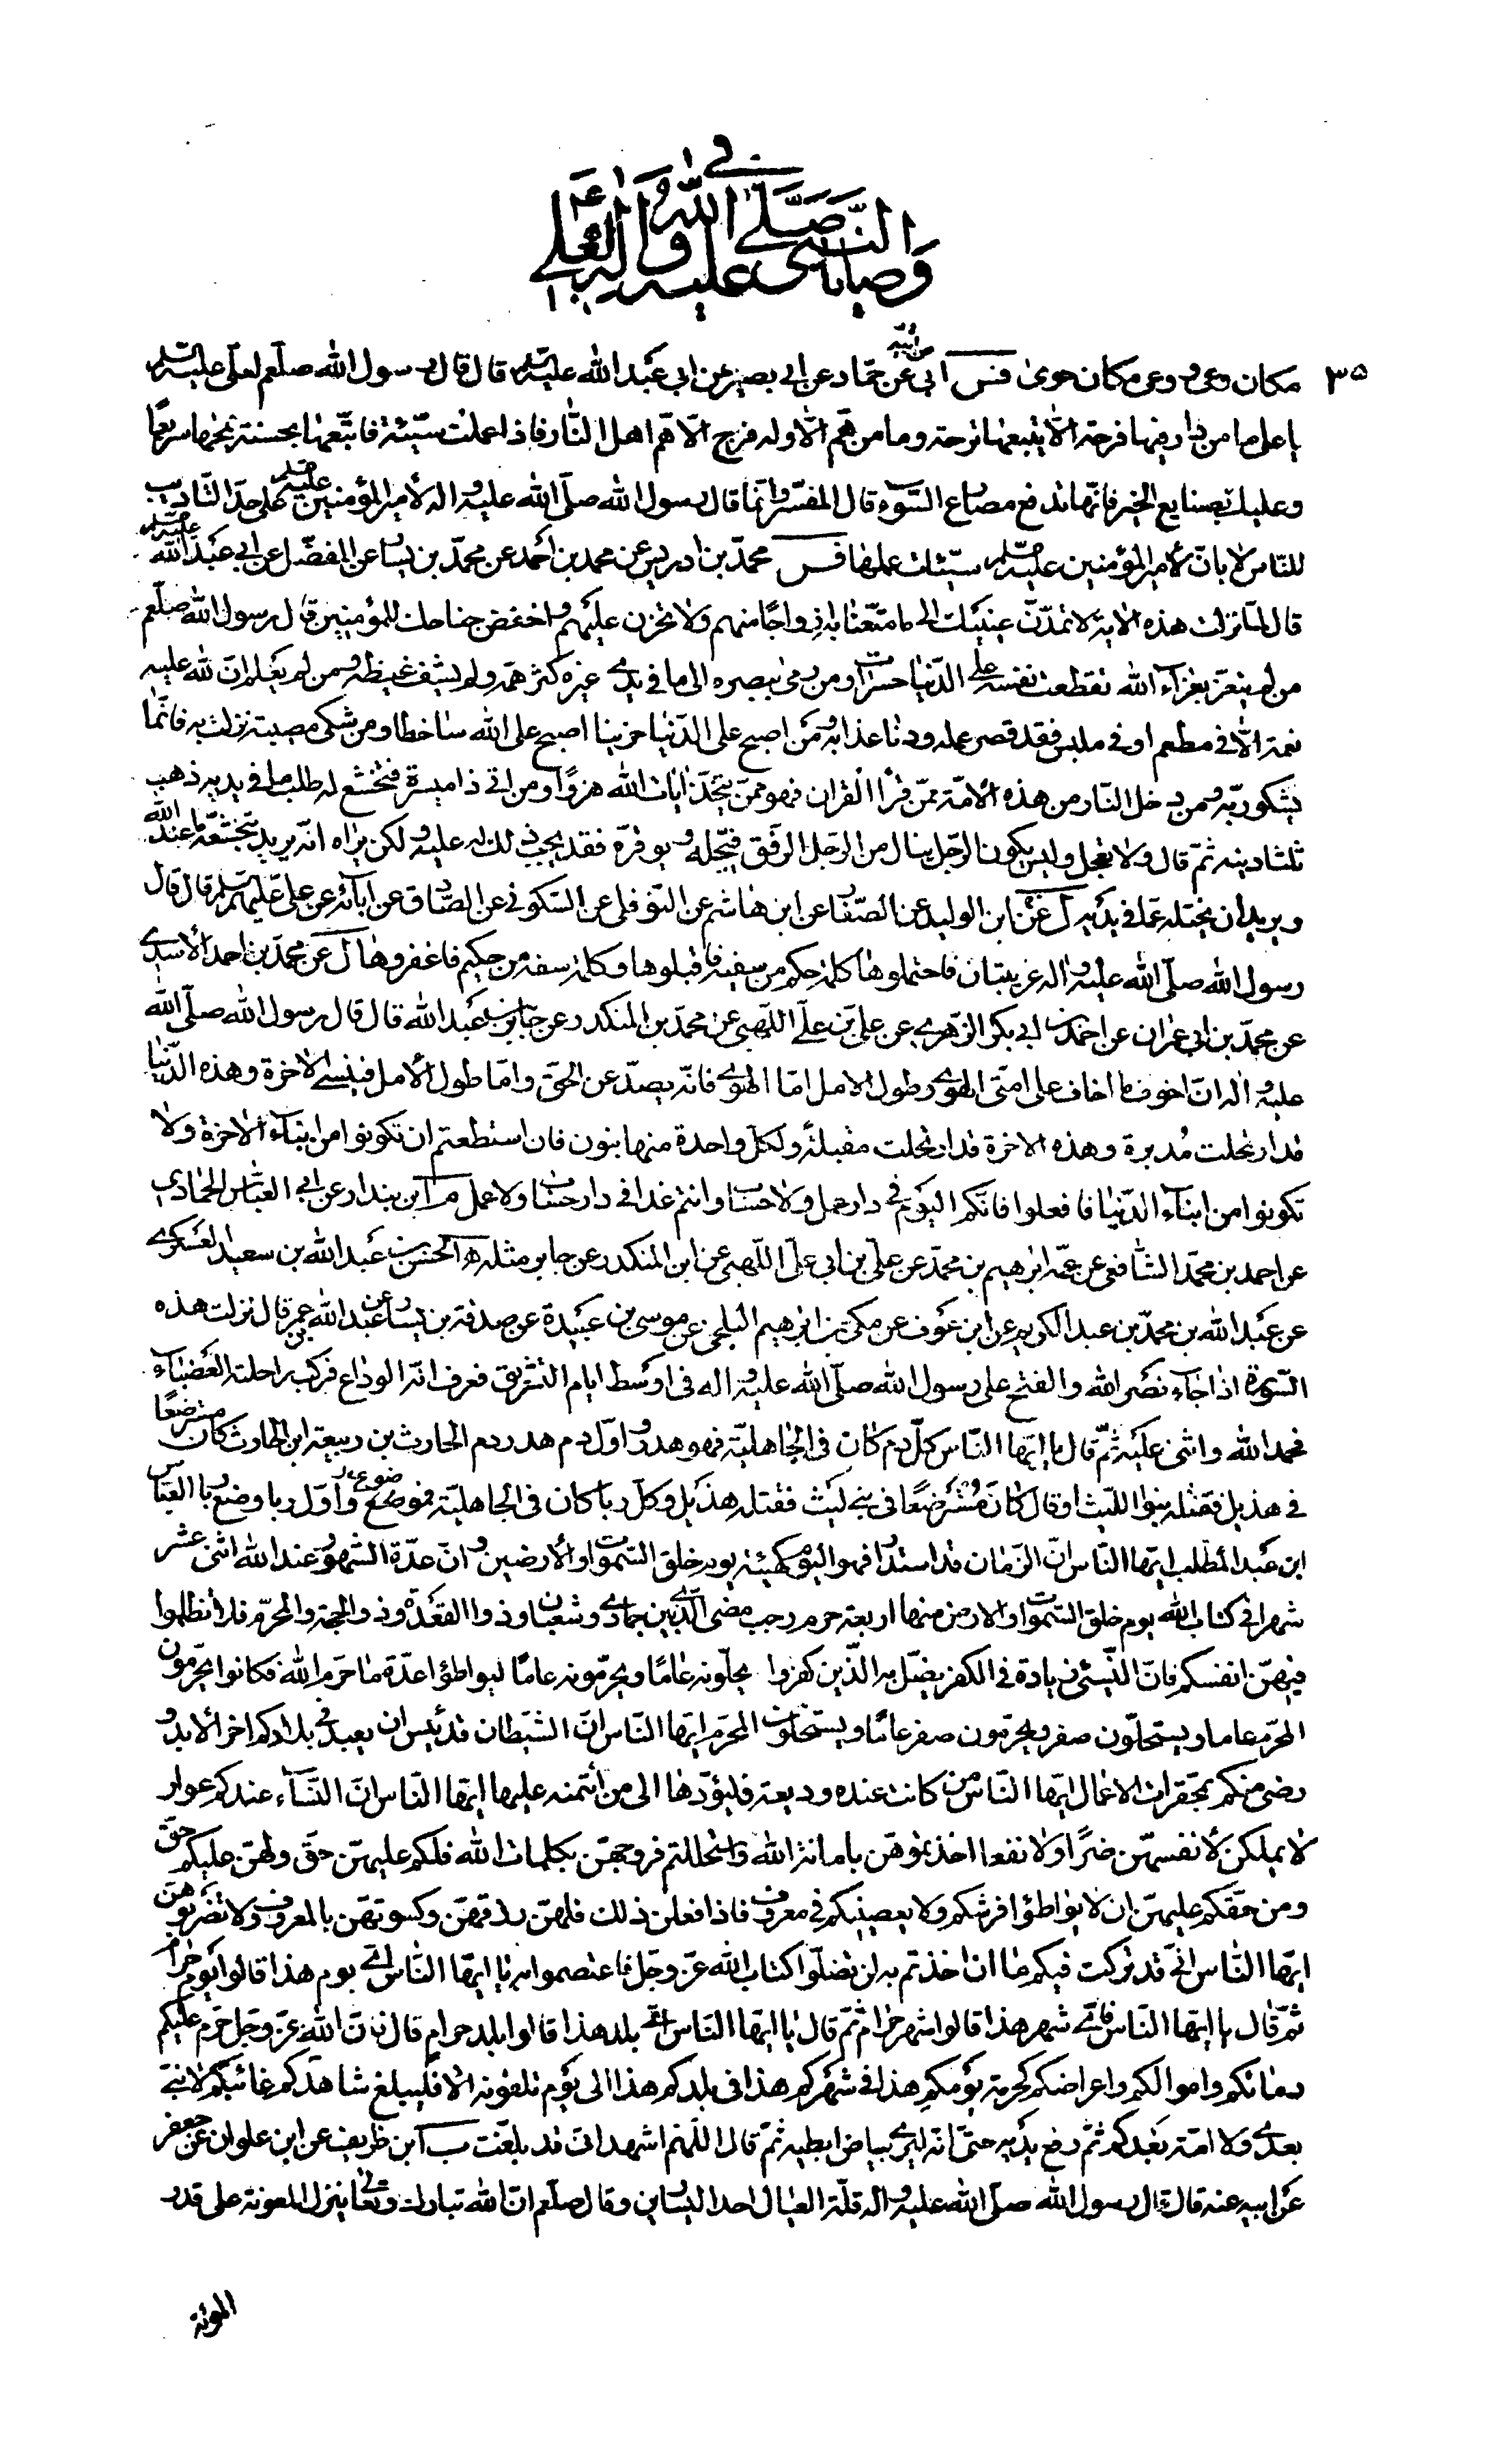 في
وصايا النبي صلى الله عليه واله لعلي ع
٣٥
مكان وعى وعن مكان حوى فس ابي عن حماد عن ابي بصير عن ابي عبد الله عليه السلم قال قال رسول الله صلعم لعلي عليه السلم
يا علي ما من دار فيها فرحة الا يتبعها ترحة وما من هم الا وله فرج الا هم اهل النار فاذا عملت سيئة فاتبعها بحسنة تمحها سريعا
وعليك بصنايع الخير فانها تدفع مصارع السوء قال المفسر وانما قال رسول الله صلى الله عليه واله لأمير المؤمنين عليه السلم على حد التاديب
للناس لا بان لأمير المؤمنين عليه السلم سيئات عملها فس محمد بن ادريس عن محمد بن احمد عن محمد بن يسار عن المفضل عن ابي عبد الله عليه السلم
قال لما نزلت هذه الاية لا تمدن عينيك الى ما متعنا به ازواجا منهم ولا تحزن عليهم واخفض جناحك للمؤمنين قال رسول الله صلعم
من لم يتعز بعزاء الله تقطعت نفسه على الدنيا حسرات ومن رمى ببصره الى ما في يدي غيره كثر همه ولم يشف غيظه ومن لم يعلم ان لله عليه
نعمة الا في مطعم او في ملبس فقد قصر عمله ودنا عذابه ومن اصبح على الدنيا حزينا اصبح على الله ساخطا ومن شكى مصيبة نزلت به فانما
يشكو ربه ومن دخل النار من هذه الأمة ممن قرأ القران فهو ممن يتخذ ايات الله هزوا ومن اتى ذا ميسرة فتخشع له طلب ما في يديه ذهب
ثلثا دينه ثم قال ولا تعجل وليس يكون الرجل ينال من الرجل الرفق فيجله ويوقره فقد يجب ذلك له عليه ولكن يراه انه يريد بتخشعه ما عند الله
ويريد ان يختله عما في يديه ل عن ابن الوليد عن الصفار عن ابن هاشم عن النوفلي عن السكوني عن الصادق عن ابائه عن علي عليهم السلم قال قال
رسول الله صلى الله عليه واله غريبتان فاحتملوها كلمة حكم من سفيه فاقبلوها وكلمة سفه من حكيم فاغفروها ل عن محمد بن احمد الأسدي
عن محمد بن ابي عمران عن احمد بن ابي بكر الزهري عن علي بن علي اللهبي عن محمد بن المنكدر عن جابر بن عبد الله قال قال رسول الله صلى الله
عليه واله ان اخوف ما اخاف على امتي الهوى وطول الامل اما الهوى فانه يصد عن الحق واما طول الأمل فينسي الاخرة وهذه الدنيا
قد ارتحلت مدبرة وهذه الاخرة قد ارتحلت مقبلة ولكل واحدة منها بنون فان استطعتم ان تكونوا من ابناء الاخرة ولا
تكونوا من ابناء الدنيا فافعلوا فانكم اليوم في دار عمل ولا حساب وانتم غدا في دار حساب ولا عمل ابن بندار عن ابي العباس الحمادي
عن احمد بن محمد الشافعي عن عمه ابرهيم بن محمد عن علي بن ابي علي اللهبي عن ابن المنكدر عن جابر مثله الحسن بن عبد الله بن سعيد العسكري
عن عبد الله بن محمد بن عبد الكريم عن ابن عوف عن مكي بن ابرهيم البلخي عن موسى بن عبيدة عن صدقة بن يسار عن عبد الله بن عمر قال نزلت هذه
السورة اذا جاء نصر الله والفتح على رسول الله صلى الله عليه واله في اوسط ايام التشريق فعرف انه الوداع فركب راحلته العضباء
فحمد الله واثنى عليه ثم قال يا ايها الناس كل دم كان في الجاهلية فهو هدر واول دم هدر دم الحارث بن ربيعة ابن الحارث كان مسترضعا
في هذيل فقتله بنو الليث او قال كان مسترضعا في بني ليث فقتله هذيل وكل ربا كان في الجاهلية فموضوع واول ربا وضع ربا العباس
ابن عبد المطلب ايها الناس ان الزمان قد استدار فهو اليوم كهيئة يوم خلق السموات والأرضين وان عدة الشهور عند الله اثني عشر
شهرا في كتاب الله يوم خلق السموات والارض منها اربعة حرم رجب مضر الذي بين جمادى وشعبان وذو القعدة وذو الحجة والمحرم فلا تظلموا
فيهن انفسكم فان النسيء زيادة في الكفر يضل به الذين كفروا يحلونه عاما ويحرمونه عاما ليواطؤا عدة ما حرم الله فكانوا يحرمون
المحرم عاما ويستحلون صفر ويحرمون صفر عاما ويستحلون المحرم ايها الناس ان الشيطان قد يئس ان يعبد في بلادكم اخر الأبد و
رضي منكم بمحقرات الاعمال ايها الناس من كانت عنده وديعة فليؤدها الى من ائتمنه عليها ايها الناس ان النساء عندكم عوار
لا يملكن لأنفسهن ضرا ولا نفعا اخذتموهن بامانة الله واستحللتم فروجهن بكلمات الله فلكم عليهن حق ولهن عليكم حق
ومن حقكم عليهن ان لا يواطؤا فرشكم ولا يعصينكم في معروف فاذا فعلن ذلك فلهن رزقهن وكسوتهن بالمعروف ولا تضربوهن
ايها الناس اني قد تركت فيكم ما ان اخذتم به لن تضلوا كتاب الله عز وجل فاعتصموا به يا ايها الناس اي يوم هذا قالوا يوم حرام
ثم قال يا ايها الناس فاي شهر هذا قالوا شهر حرام ثم قال يا ايها الناس اي بلد هذا قالوا بلد حرام قال فان الله عز وجل حرم عليكم
دمائكم واموالكم واعراضكم كحرمة يومكم هذا في شهركم هذا في بلدكم هذا الى يوم تلقونه الا فليبلغ شاهدكم غائبكم لا نبي
بعدي ولا امة بعدكم ثم رفع يديه حتى انه ليرى بياض ابطيه ثم قال اللهم اشهد اني قد بلغت ب ابن ظريف عن ابن علوان عن جعفر
عن ابيه عنه قال قال رسول الله صلى الله عليه واله قلة العيال احد اليسارين وقال صلعم ان الله تبارك وتعالى ينزل المعونة على قدر
المؤنة